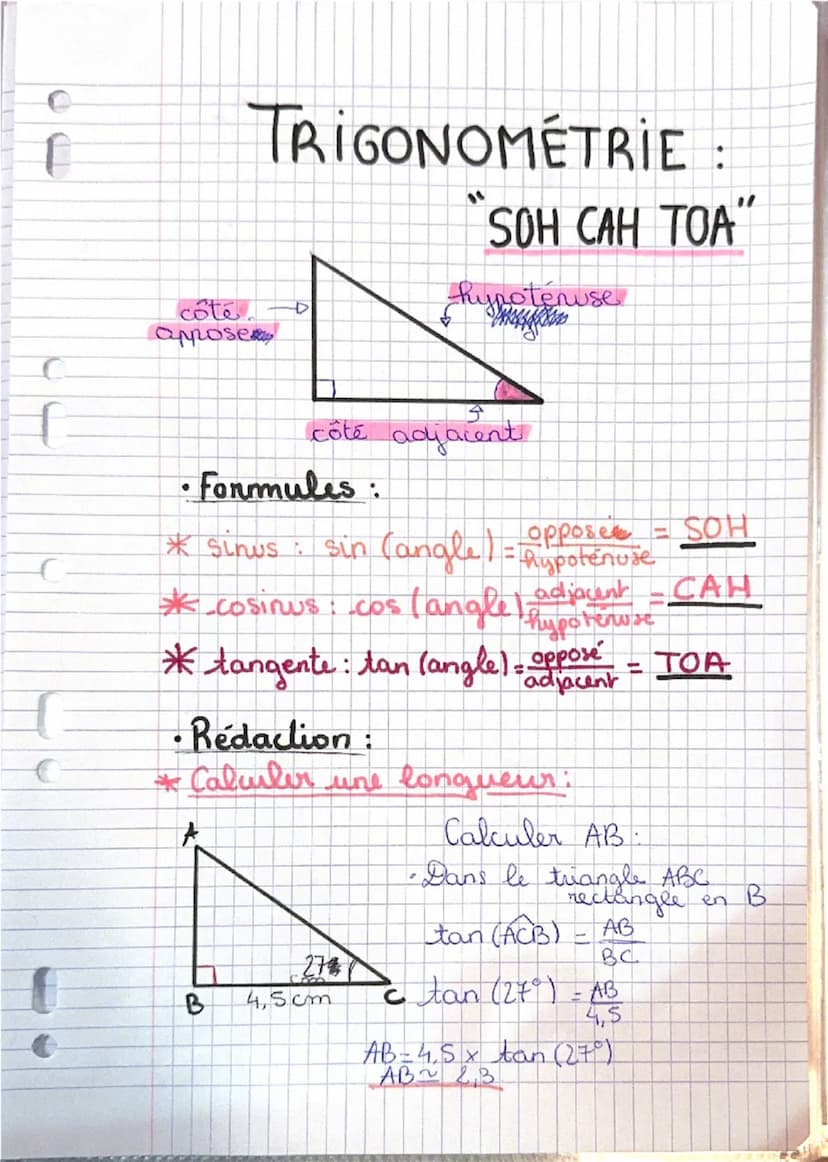 TRIGONOMÉTRIE :
"SOH CAH TOA"
hypoténuse
côté
opposé
côté adjacent
• Formules :
* sinus : sin (angle) = opposé / hypoténuse = SOH
* cosinus : cos (angle) adjacent / hypoténuse = CAH
* tangente : tan (angle) = opposé / adjacent = TOA
• Rédaction :
* Calculer une longueur :
A
Calculer AB :
• Dans le triangle ABC
rectangle en B
tan (ACB) = AB / BC
27°
B 4,5cm C
tan (27°) = AB / 4,5
AB = 4,5 x tan (27°)
AB ≃ 2,3